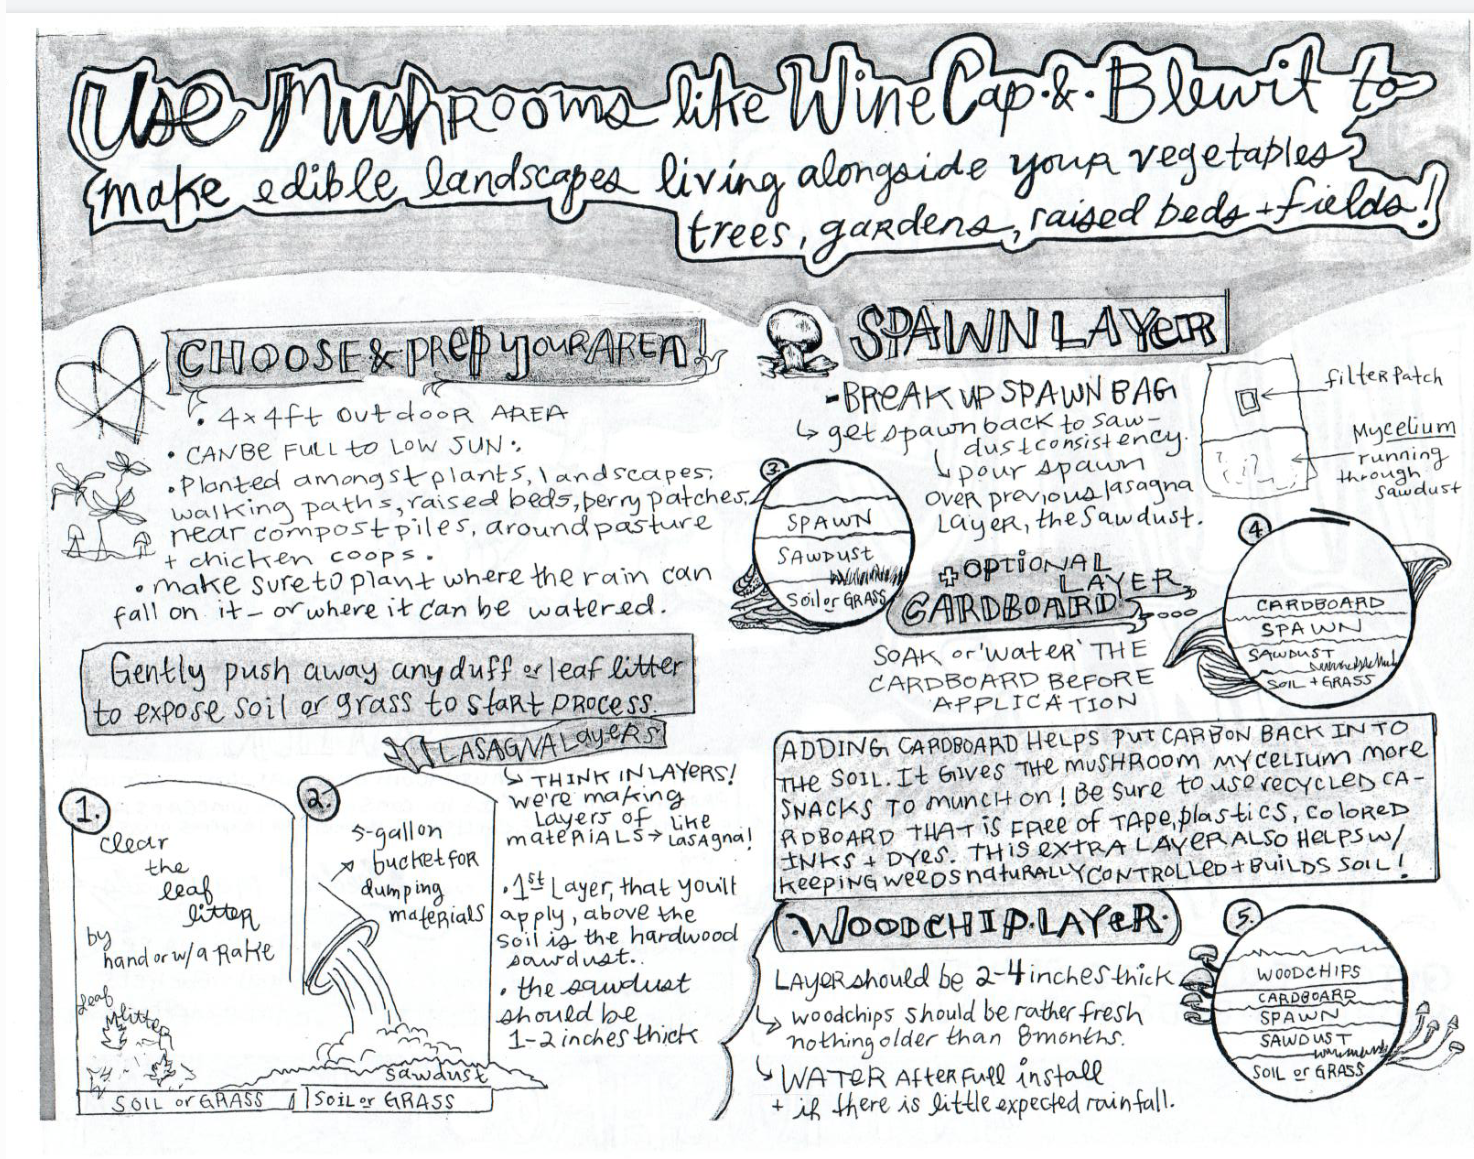 Use Mushrooms like Wine Cap & Blewit to
make edible landscapes living alongside your vegetables,
trees, gardens, raised beds + fields!
CHOOSE & PREP YOUR AREA!
• 4x4ft OUTdOOR AREA
• CAN BE FULL TO LOW SUN:
• Planted amongst plants, landscapes,
walking paths, raised beds, berry patches,
near compost piles, around pasture
+ chicken coops.
• make sure to plant where the rain can
fall on it - or where it can be watered.
Gently push away any duff or leaf litter
to expose soil or grass to start process.
LASAGNA LAYERS
1.
clear
the
leaf
litter
by
hand or w/ a RAKE
leaf
litter
SOIL or GRASS
2.
5-gallon
bucket for
dumping
materials
Sawdust
SOIL or GRASS
THINK IN LAYERS!
we're making
Layers of
materials → like lasagna!
• 1st Layer, that you'll
apply, above the
soil is the hardwood
sawdust..
• the sawdust
should be
1-2 inches thick
SPAWN LAYER
- BREAK UP SPAWN BAG
get spawn back to saw-
dust consistency.
pour spawn
over previous lasagna
Layer, the sawdust.
filter Patch
Mycelium
running
through
Sawdust
3.
SPAWN
SAWDUST
Soil or GRASS
+ OPTIONAL
LAYER
CARDBOARD:
SOAK or 'water' THE
CARDBOARD BEFORE
APPLICATION
4.
CARDBOARD
SPAWN
SAWDUST
SOIL + GRASS
ADDING CARDBOARD HELPS PUT CARBON BACK IN TO
THE SOIL. IT GIVES THE MUSHROOM MYCELIUM more
SNACKS TO MUNCH ON! BE SURE TO USE RECYCLED CA-
RDBOARD THAT IS FREE OF TAPE, PLASTICS, COLORED
INKS + DYES. THIS EXTRA LAYER ALSO HELPS W/
KEEPING WEEDS NATURALLY CONTROLLED + BUILDS SOIL!
WOODCHIP LAYER.
LAYER should be 2-4 inches thick
woodchips should be rather fresh
nothing older than 8 months.
WATER AFTER full install
+ if there is little expected rainfall.
5.
WOODCHIPS
CARDBOARD
SPAWN
SAWDUST
SOIL or GRASS